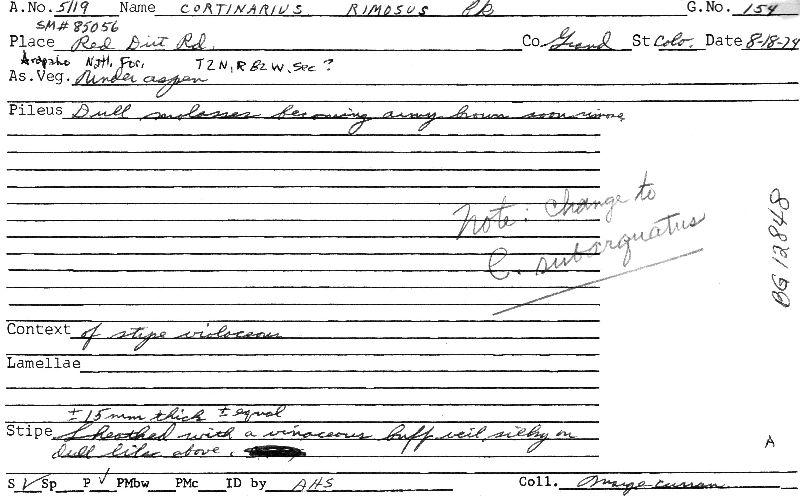 A.No. 5119 Name CORTINARIUS RIMOSUS Pk G.No. 154
SM# 85056
Place Red Dirt Rd. Co Grand St Colo. Date 8-18-74
Arapaho Natl. For. T2N, R82W, Sec ?
As.Veg. Under aspen
Pileus Dull molasses becoming army brown soon rimose
Note: change to
C. subarquatus
BG 12848
Context of stipe violaceous
Lamellae
± 15 mm thick ± equal
Stipe Sheathed with a vinaceous buff veil, silky on
Dull lilac above.
A
S ✓ Sp P ✓ PMbw PMc ID by AHS Coll. Marge Curran